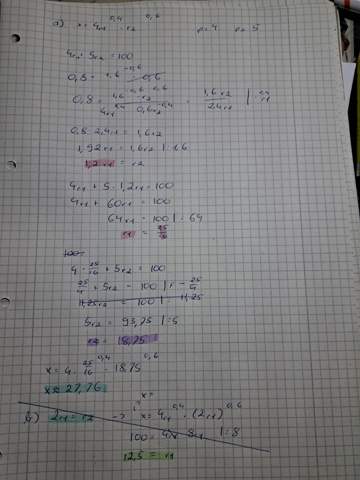 a) x = 4r₁^0,4 · r₂^0,6 p=4 p=5
4r₁ + 5r₂ = 100
0,8 = 1,6
0,8 = = 1,6r₂ / 2,4r₁ | · r₁
0,8 · 2,4r₁ = 1,6r₂
1,92r₁ = 1,6r₂ | : 1,6
1,2r₁ = r₂
4r₁ + 5 · 1,2r₁ = 100
4r₁ + 60r₁ = 100
64r₁ = 100 | : 64
r₁ = 25/16
4 · 25/16 + 5r₂ = 100
25/4 + 5r₂ = 100 | - 25/4
11,25r₂ = 100 | : 11,25
5r₂ = 93,75 | : 5
r₂ = 18,75
x = 4 · 25/16^0,4 · 18,75^0,6
x ≈ 27,76
x =
b) 2r₁ = r₂ -> x = 4r₁^0,4 · (2r₁)^0,6
100 = 8r₁ | : 8
12,5 = r₁